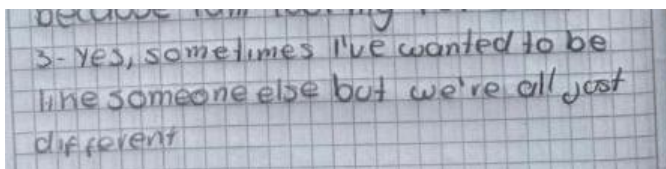 because I am
3- yes, sometimes I've wanted to be
like someone else but we're all just
different